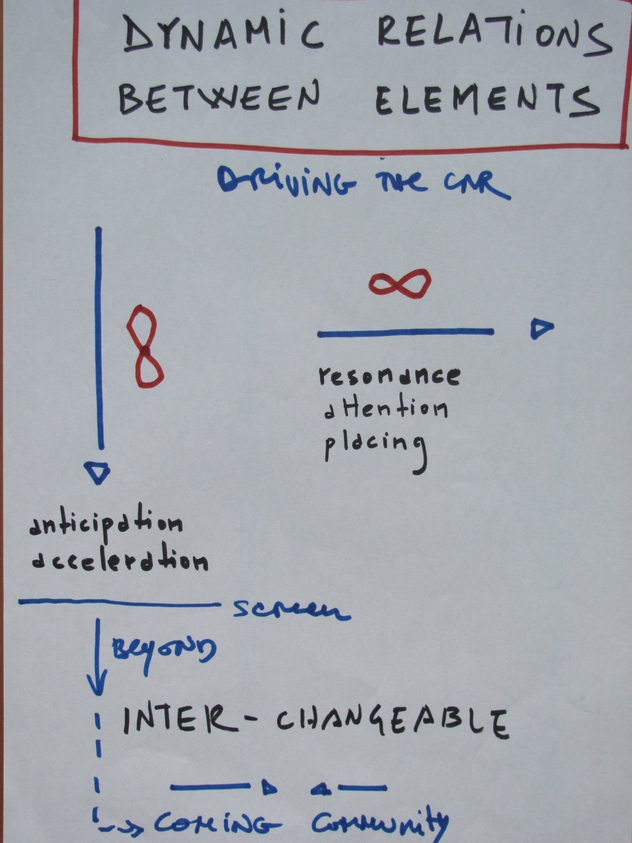 DYNAMIC RELATIONS
BETWEEN ELEMENTS
DRIVING THE CAR
∞
∞
resonance
attention
placing
anticipation
acceleration
screen
BEYOND
INTER-CHANGEABLE
COMING COMMUNITY